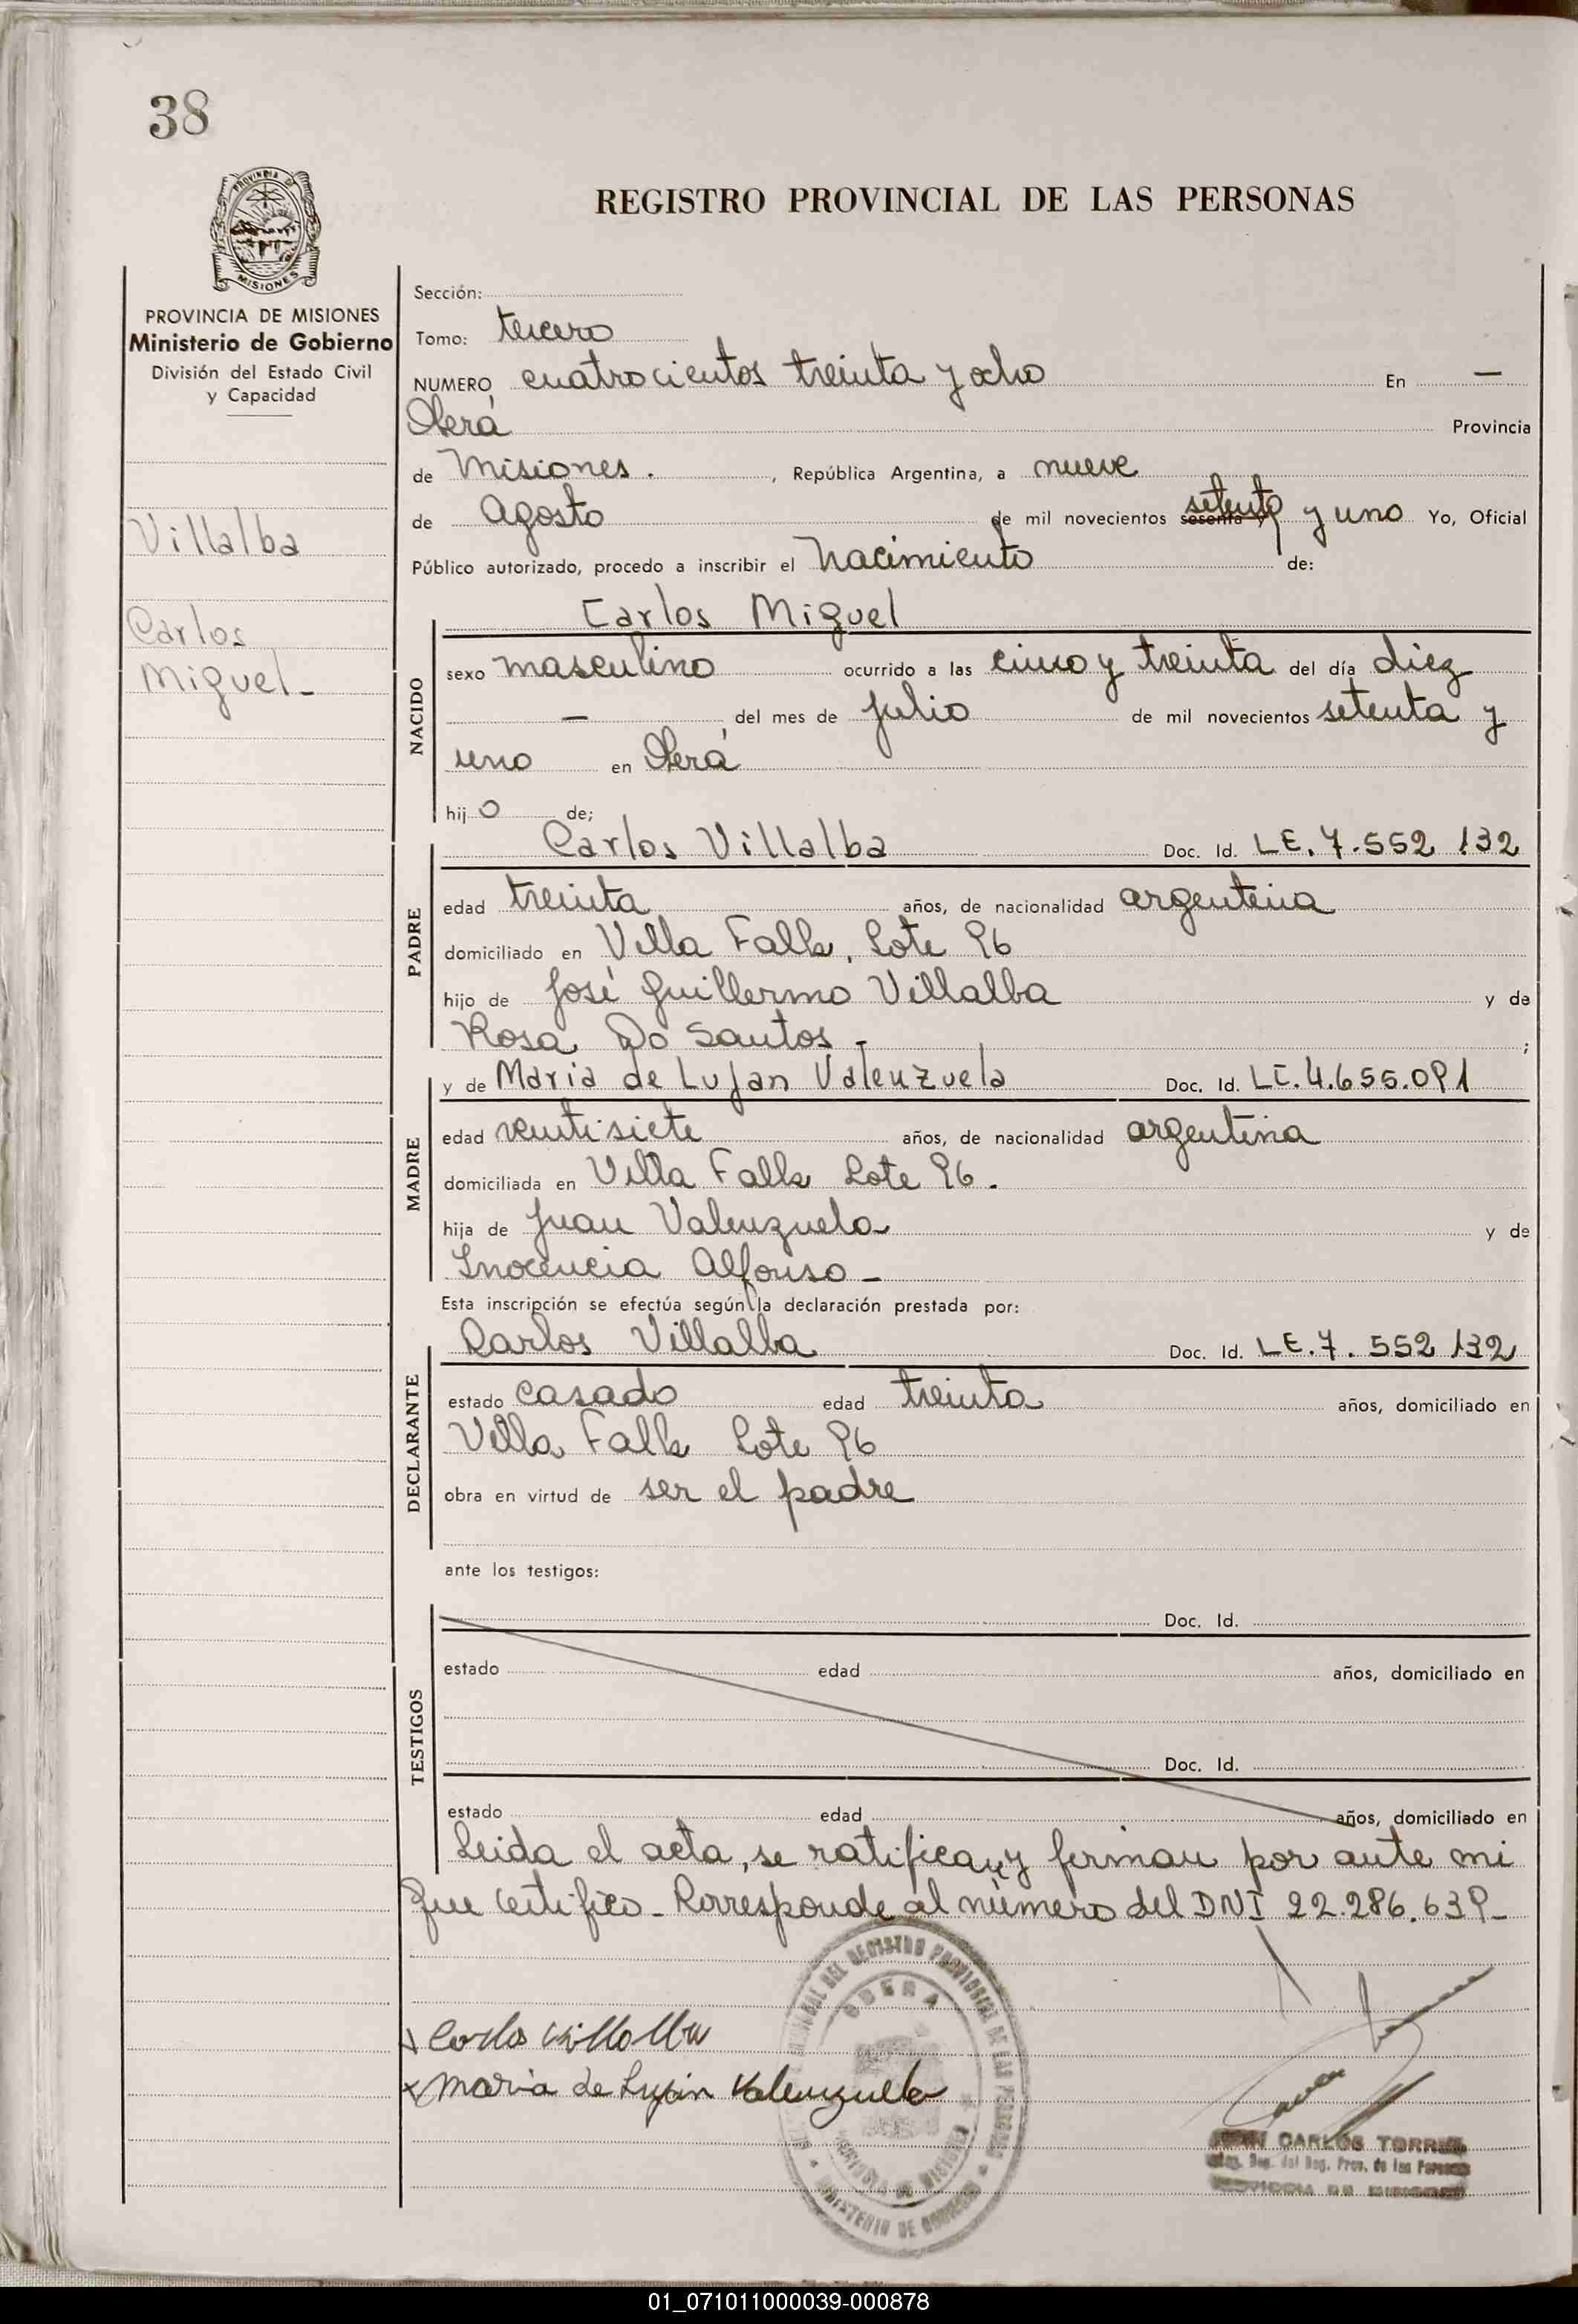 38
PROVINCIA DE
MISIONES
REGISTRO PROVINCIAL DE LAS PERSONAS
PROVINCIA DE MISIONES
Ministerio de Gobierno
División del Estado Civil
y Capacidad
Villalba
Carlos
Miguel_
Sección:
Tomo: tercero
NUMERO cuatrocientos treinta y ocho En —
Oberá Provincia
de Misiones. , República Argentina, a nueve
de Agosto de mil novecientos sesenta y setenta y uno Yo, Oficial
Público autorizado, procedo a inscribir el Nacimiento de:
NACIDO
Carlos Miguel
sexo masculino ocurrido a las cinco y treinta del día diez
— del mes de julio de mil novecientos setenta y
uno en Oberá
hijo de;
PADRE
Carlos Villalba Doc. Id. LE. 7.552 132
edad treinta años, de nacionalidad argentina
domiciliado en Villa Falk, Lote 96
hijo de José Guillermo Villalba y de
Rosa Do Santos - ;
MADRE
y de Maria de Lujan Valenzuela Doc. Id. LC. 4.655.091
edad veintisiete años, de nacionalidad argentina
domiciliada en Villa Falk Lote 96.
hija de Juan Valenzuela y de
Inocencia Alfonso -
Esta inscripción se efectúa según la declaración prestada por:
DECLARANTE
Carlos Villalba Doc. Id. LE. 7. 552 132
estado casado edad treinta años, domiciliado en
Villa Falk Lote 96
obra en virtud de ser el padre
ante los testigos:
TESTIGOS
Doc. Id.
estado edad años, domiciliado en
Doc. Id.
estado edad años, domiciliado en
Leida el acta, se ratifican y firman por ante mi
que certifico - Corresponde al número del DNI 22.286.639 -
x Carlos Villalba
x Maria de Lujan Valenzuela
DEL REGISTRO PROVINCIAL DE LAS PERSONAS
OBERA
PROVINCIA DE MISIONES
MINISTERIO DE GOBIERNO
JUAN CARLOS TORRES
del Reg. Prov. de las Personas
PROVINCIA DE MISIONES
01_071011000039-000878